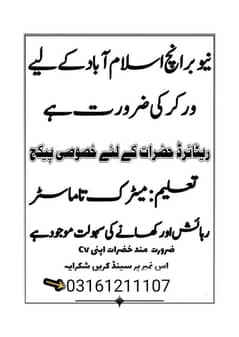 نیو برانچ اسلام آباد کے لیے
ورکر کی ضرورت ہے
ریٹائرڈ حضرات کے لئے خصوصی پیکج
تعلیم: میٹرک تا ماسٹر
رہائش اور کھانے کی سہولت موجود ہے
ضرورت مند حضرات اپنی CV
اس نمبر پر سینڈ کریں شکرایہ
03161211107